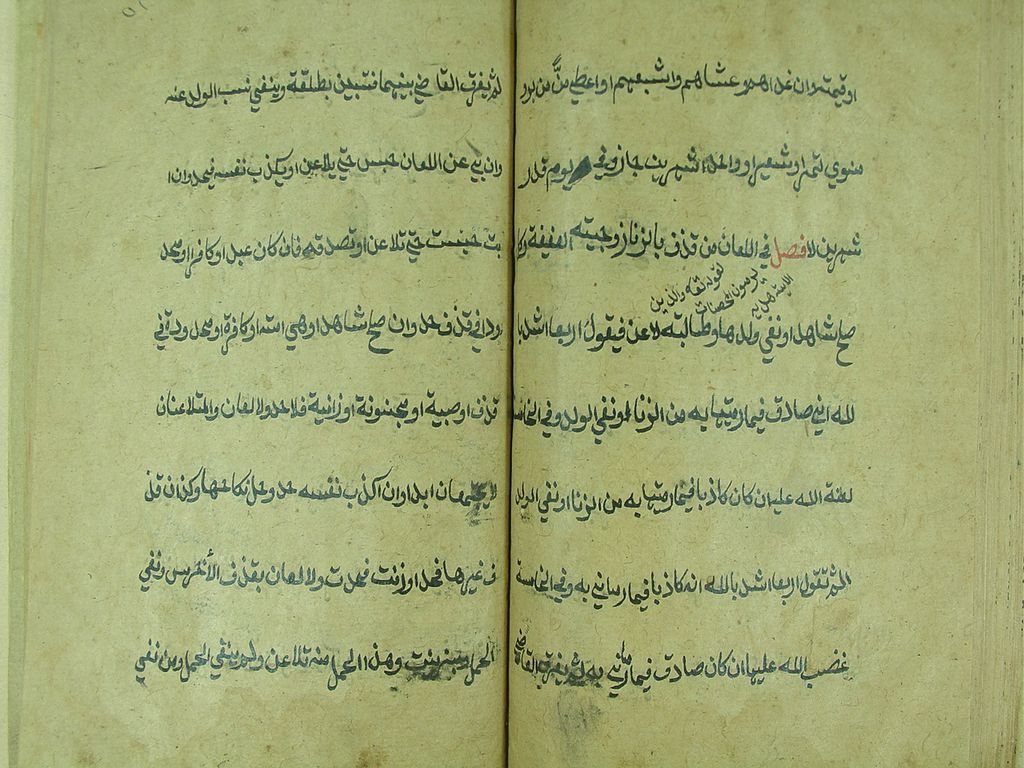 او قيمته وان غداهم وعشاهم واشبعهم او اعطي منّ من بر او
منوي تمر او شعير او واحدا شهرين جاز وفي يوم قدر
شهرين لا فصل في اللعان من قذف بالزنا زوجته العفيفة وكل
لقوله تعالى والذين
يرمون المحصنات
الآية
صح شاهدا او نفي ولدها وطالبته لاعن فيقول اربعا اشهد با
لله اني صادق فيما رميتها به من الزنا او نفي الولد وفي الخامسة
لعنة الله عليه ان كان كاذبا فيما رميتها به من الزنا او نفي الولد
ثم تقول اربعا اشهد بالله انه كاذب فيما رماني به وفي الخامسة
غضب الله عليها ان كان صادق فيما رماني به ثم يفرق القاضي
ثم يفرق القاضي بينهما فتبين بطلقة وينفي نسب الولد عنه
وان ابي عن اللعان حبس حتى يلاعن او يكذب نفسه فيحد وان ا
بت حبست حتى تلاعن او تصدقه فان كان عبدا او كافرا او محد
ودا في قذف حد وان صح شاهدا وهي امته او كافرة او محدودة في
قذف او صبية او مجنونة او زانية فلا حد ولا لعان والمتلاعنان
لا يجتمعان ابدا وان اكذب نفسه حد وحل نكاحها وكذا ان قذ
ف غيرها فحد او زنت فحدت ولا لعان بقذف الأخرس ونفي
الحمل وبزنيت وهذا الحمل منه تلاعن ولم ينتفي الحمل ومن نفي